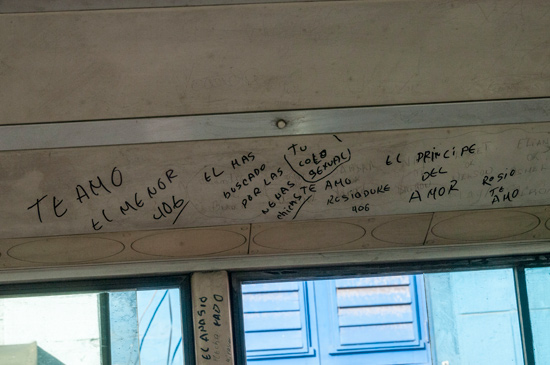 TE AMO
EL MENOR
406
EL MAS
BUSCADO
POR LAS
NENAS
chicas
TU
COLO
SEXUAL
TE AMO
RESIDURE
406
EL PRINCIPE
DEL
AMOR
ROSIO
TE
AMO
EL AMASIO